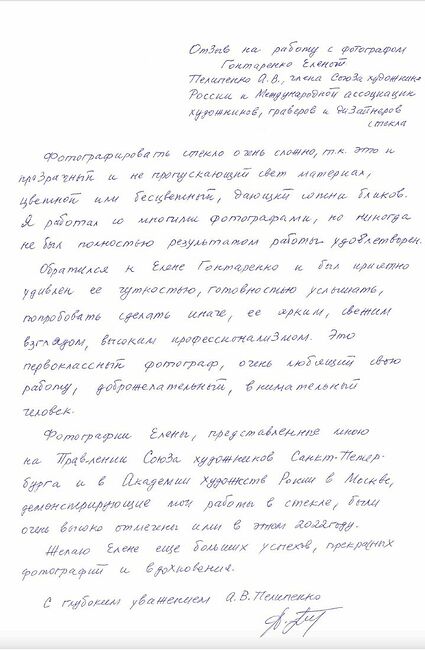 Отзыв на работу с фотографом
Гонтаренко Еленой
Пелипенко А.В., члена Союза художник
России и Международной ассоциации
художников, граверов и дизайнеров
стекла
Фотографировать стекло очень сложно, т.к. это и
прозрачный и не пропускающий свет материал,
цветной или бесцветный, дающий сотни бликов.
Я работал со многими фотографами, но никогда
не был полностью результатом работы удовлетворен.
Обратился к Елене Гонтаренко и был приятно
удивлен ее чуткостью, готовностью услышать,
попробовать сделать иначе, ее ярким, свежим
взглядом, высоким профессионализмом. Это
первоклассный фотограф, очень любящий свою
работу, доброжелательный, внимательный
человек.
Фотографии Елены, представленные мною
на Правлении Союза художников Санкт-Петер-
бурга и в Академии Художеств России в Москве,
демонстрирующие мои работы в стекле, были
очень высоко отмечены ими в этом 2022 году.
Желаю Елене еще больших успехов, прекрасных
фотографий и вдохновения.
С глубоким уважением А.В.Пелипенко